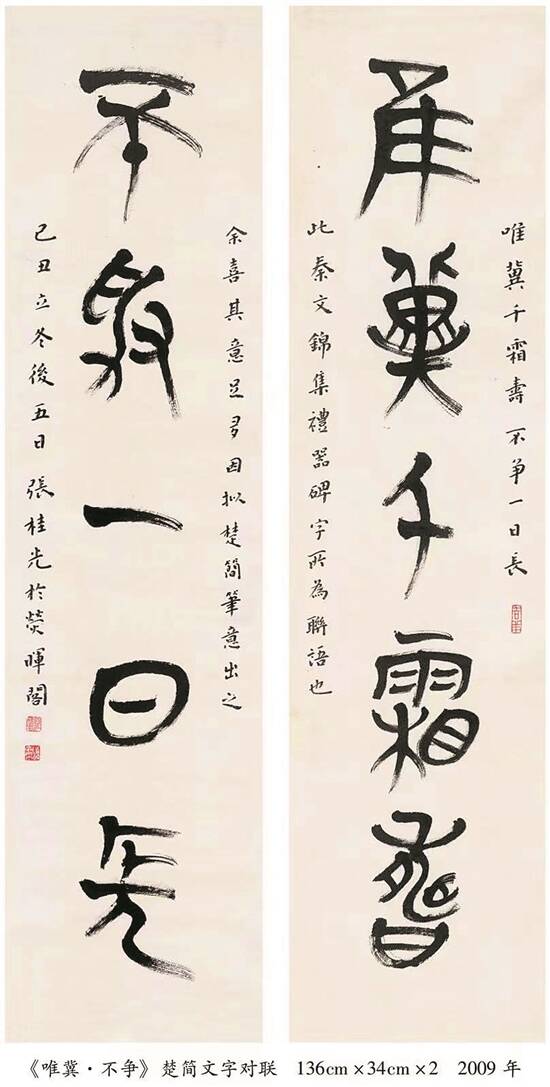 唯冀千霜壽 不争一日長
隹冀千霜壽
此秦文錦集禮器碑字所為聯語也
余喜其意足多因拟楚簡筆意出之
不争一日長
己丑立冬後五日 張桂光於熒暉閣
《唯冀·不争》 楚简文字对联 136cm×34cm×2 2009 年